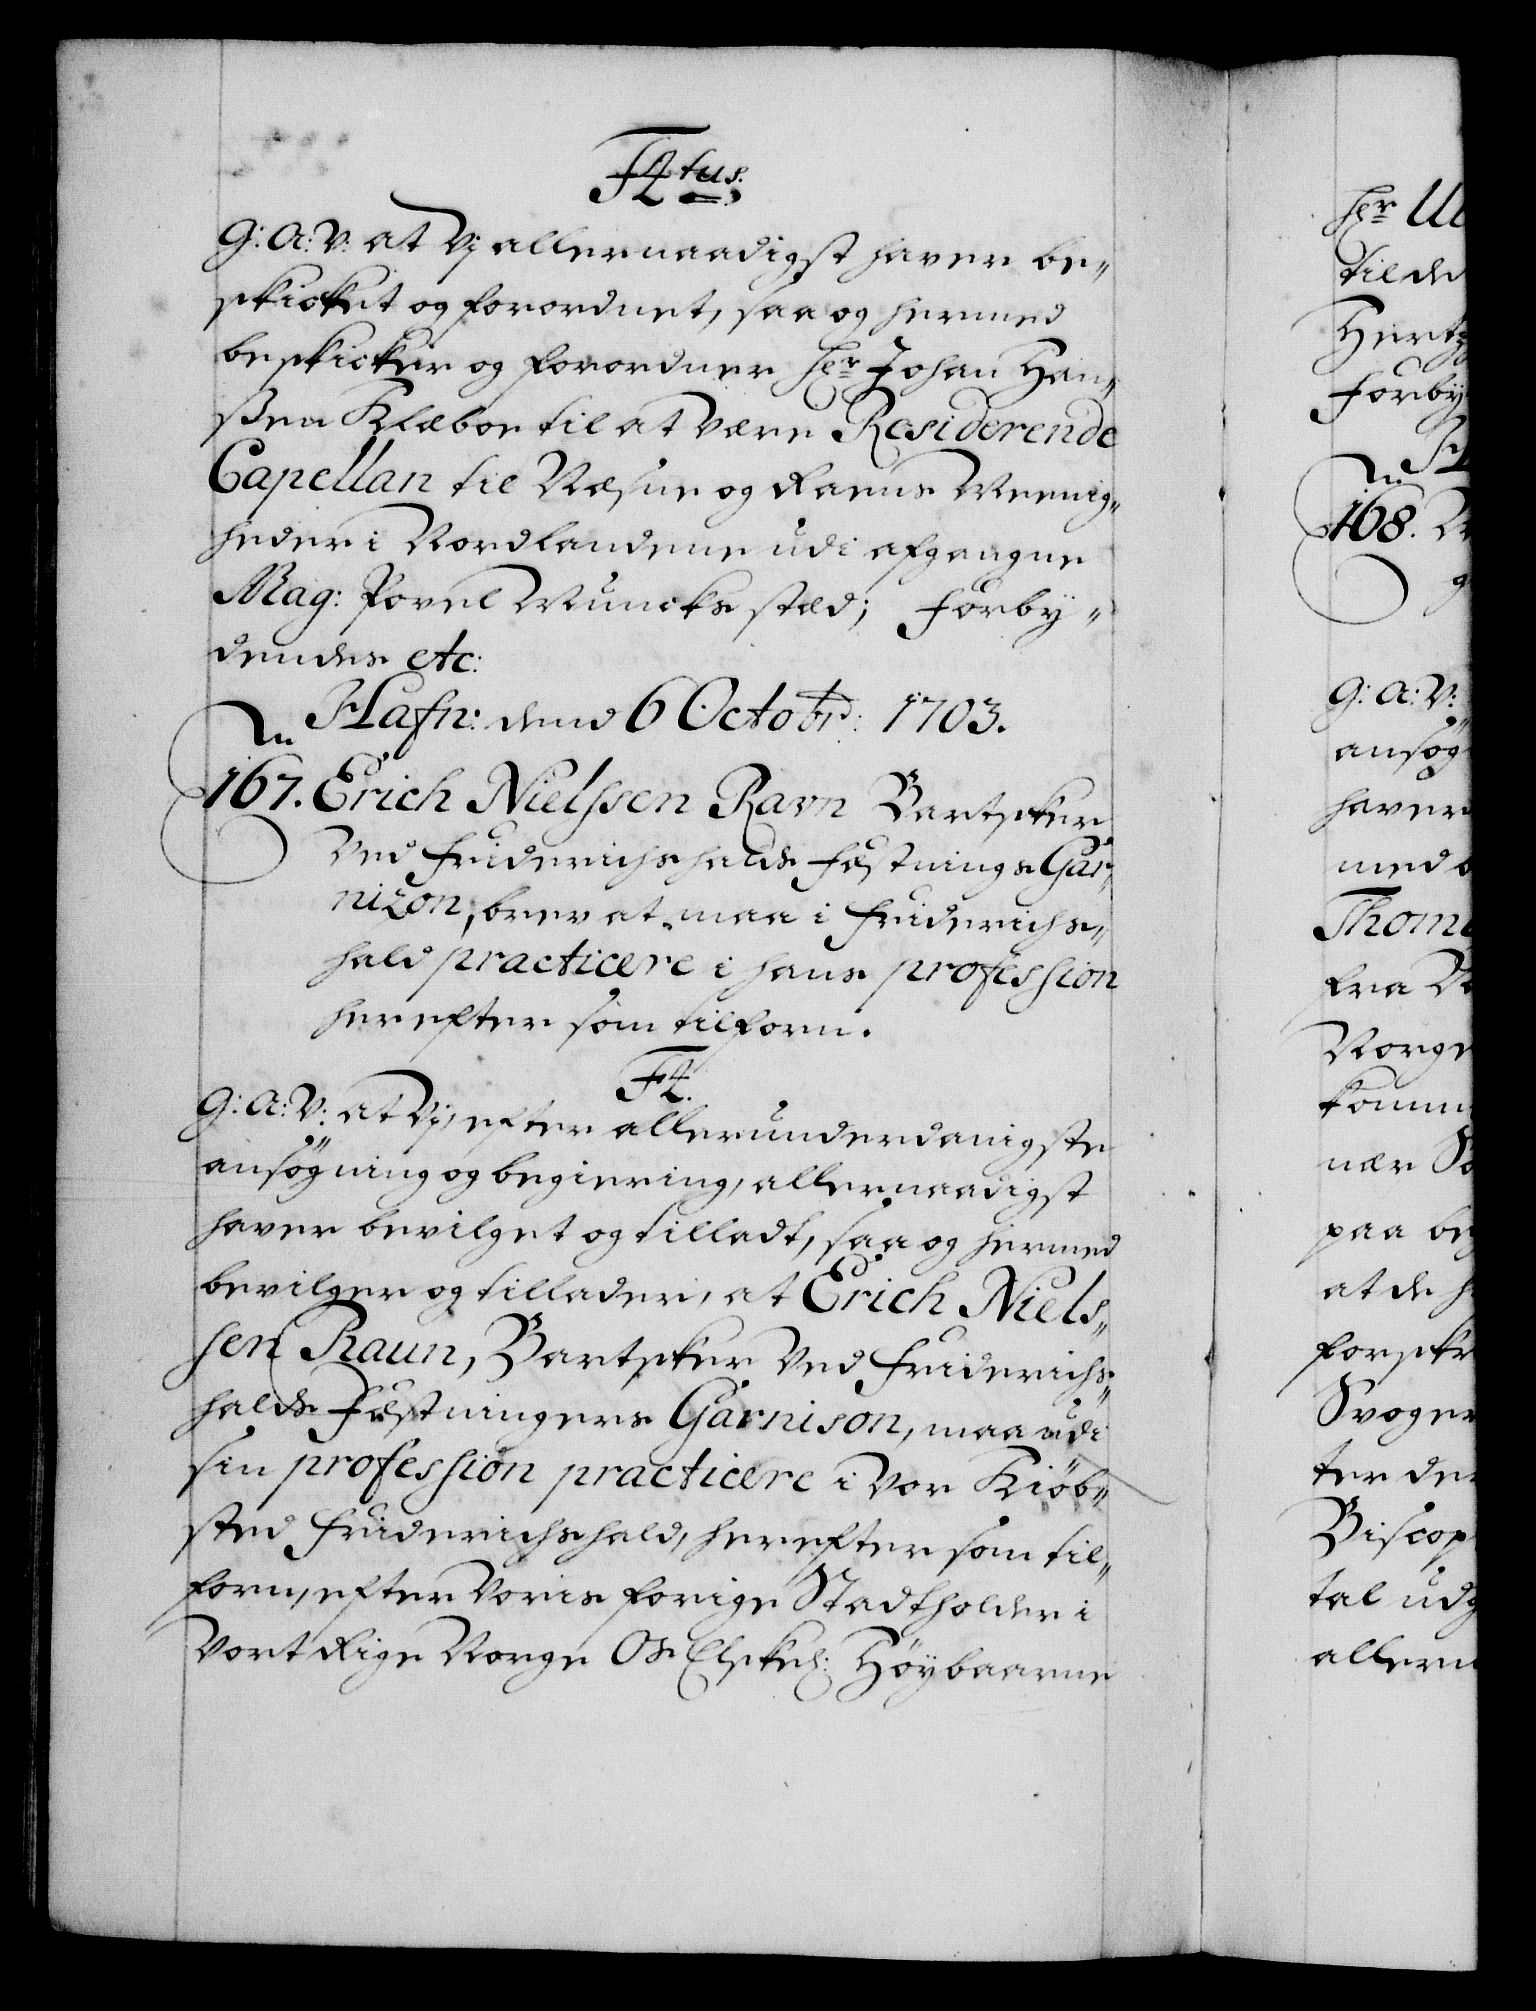 F4tus.
G: A: V: at Vj allernaadigst haver be„
skicket og forordnet, saa og hermed
beskicker og forordner hr Johan Han„
ßen Klæboe til at være Residerende
Capellan til Næsne og Raens Meenig„
heder i Nordlandene udi afgangne
Mag: Povel Muncks sted; Forby„
dendes etc:
Hafn: dend 6 Octobr: 1703.
167. Erich Nielssen Ravn Bartsker
ved Friderichshalds Fæstnings Gar„
nizon, brev at maa i Friderichs„
hald practicere i hans profession
herefter som tilforn.
F4.
G: A: V: at Vj, efter allerunderdanigste
ansøgning og begiering, allernaadigst
haver bevilget og tilladt, saa og hermed
bevilger og tillader, at Erich Niels„
sen Raun, Bartsker ved Friderichs„
halds Fæstningers Garnison, maa udi
sin profession practicere i vor Kiøb„
sted Friderichshald, herefter som til„
forn, efter voris forige Stadtholder i
vort Rige Norge Os Elskel: Høybaarne
hr Ul
til de
Hertz
Forby
168.
G: A: V:
ansøg
haver
med
Thom
fra
Norge
komm
nær
paa be
at de
forskr
Svoger
ter der
Biscop
tal udg
allern